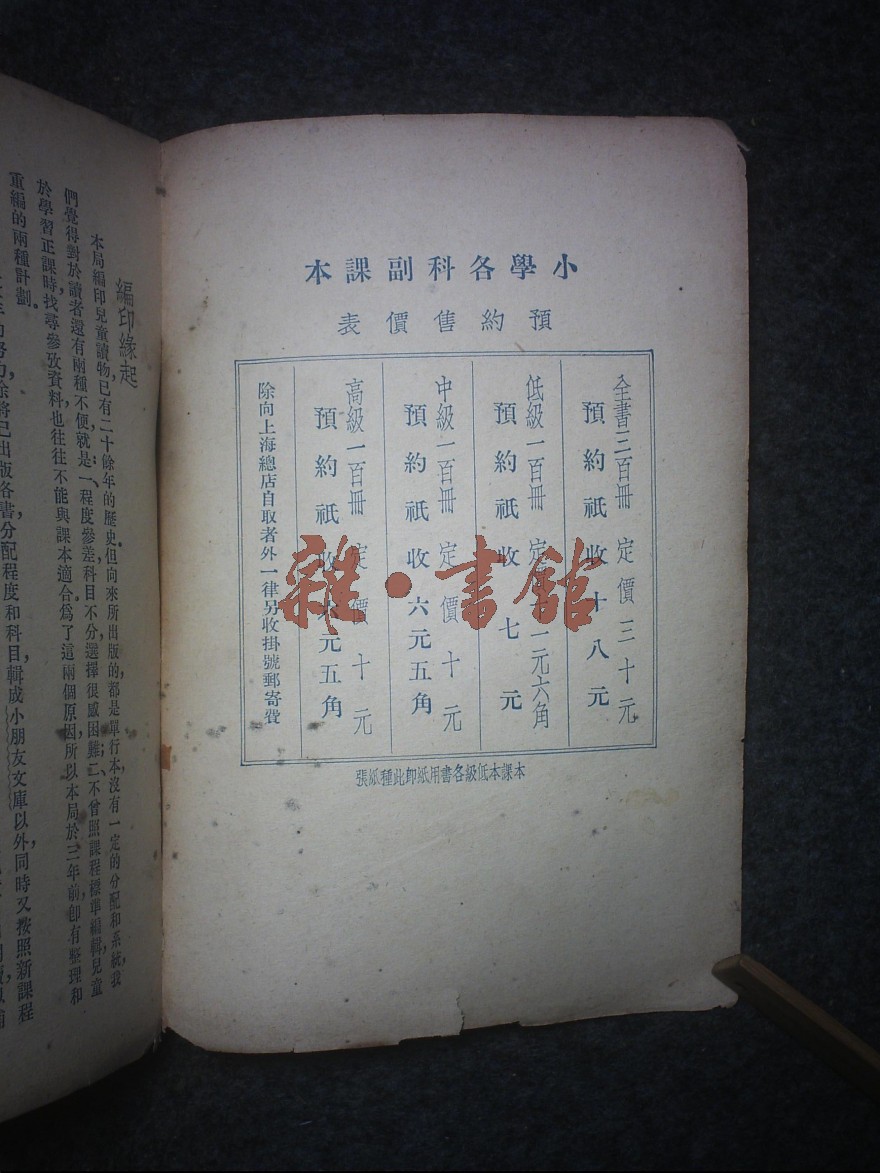 小學各科副課本
預約售價表
全書三百冊 定價三十元
預約祇收十八元
低級一百冊 定價 二元六角
預約祇收 七元
中級一百冊 定價十元
預約祇收 六元五角
高級一百冊 定價十元
預約祇收 元五角
除向上海總店自取者外一律另收掛號郵寄費
本課本低級各書用紙卽此種紙張
雜·書館
編印緣起
本局編印兒童讀物已有二十餘年的歷史但向來所出版的都是單行本沒有一定的分配和系統我
們覺得對於讀者還有兩種不便就是一、程度參差科目不分選擇很感困難二、不曾照課程標準編輯兒童
於學習正課時找尋參攷資料也往往不能與課本適合爲了這兩個原因所以本局於三年前卽有整理和
重編的兩種計劃
除將已出版各書分配程度和科目輯成小朋友文庫以外同時又按照新課程